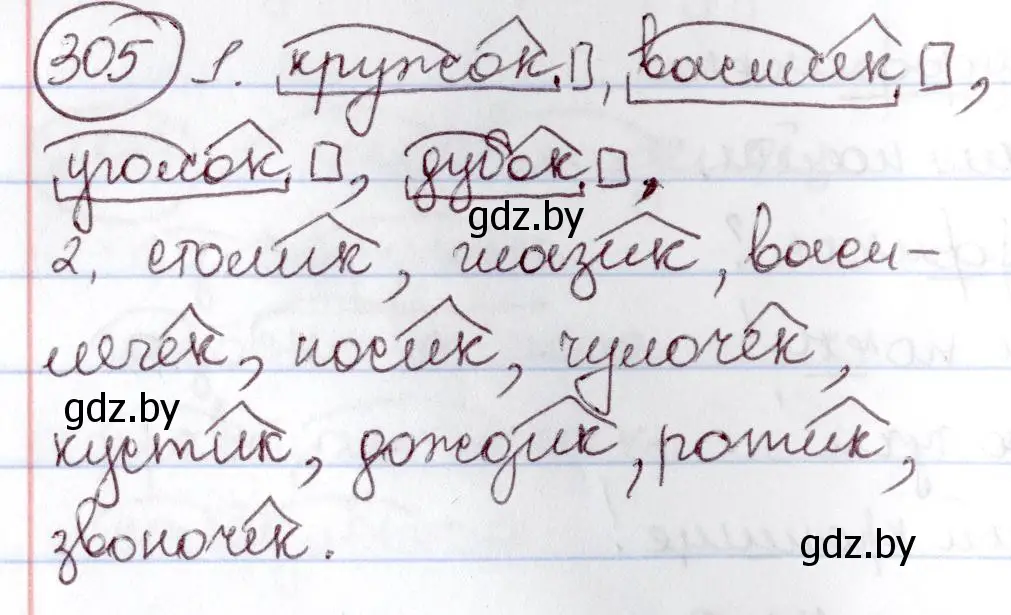 305 1. кружок□, василек□,
уголок□, дубок□,
gdz.by
2. столик, глазик, васи-
лечек, носик, чулочек,
gdz.by
кустик, дождик, ротик,
звоночек.
gdz.by